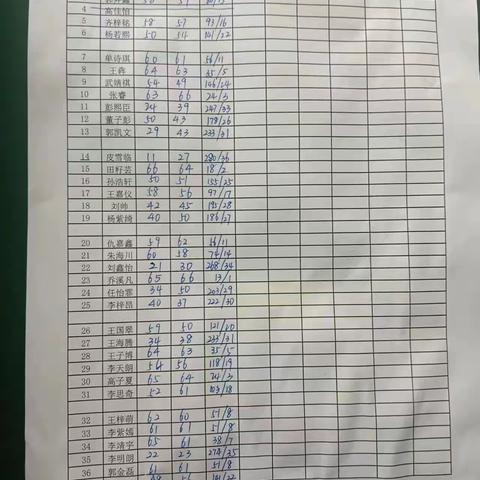 4 高佳怡
5 齐梓铭 58 57 93/16
6 杨若熙 50 54 101/22
7 单诗琪 60 61 56/11
8 王犇 64 63 35/5
9 武靖祺 54 49 146/24
10 张睿 63 66 24/3
11 彭熙臣 24 39 247/33
12 董子彭 50 43 178/26
13 郭凯文 29 43 233/31
14 皮雪临 11 27 280/36
15 田籽芸 66 64 18/2
16 孙浩轩 50 51 155/25
17 王嘉仪 58 56 97/17
18 刘帅 42 45 195/28
19 杨紫绮 40 50 186/27
20 仇嘉鑫 59 62 56/11
21 朱海川 60 58 74/14
22 刘鑫怡 21 30 268/34
23 乔溪凡 65 66 13/1
24 任怡霏 34 50 203/29
25 李梓昂 40 37 222/30
26 王国翠 59 50 121/20
27 王海腾 34 38 233/31
28 王子博 64 63 35/5
29 李天朗 54 56 118/19
30 高子夏 65 64 24/3
31 李思奇 52 61 103/18
32 王梓萌 62 60 51/8
33 李紫嫣 61 61 51/8
34 李清宇 65 61 38/7
35 李明朗 22 23 274/35
36 郭金磊 61 61 51/8